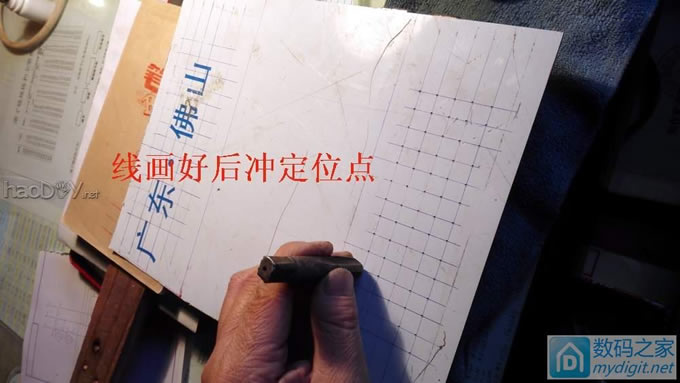 广东·佛山
线画好后冲定位点
haoDIY.net
数码之家
mydigit.net